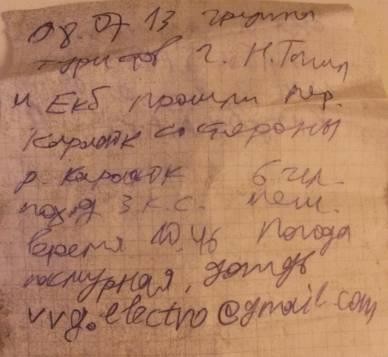 08.07 13 группа
туристов г. Н.Тагил
и Екб прошли пер.
со стороны
р. 6 чел.
поход 3 к.с. пеш.
время 10.46 Погода
пасмурная, дождь
vvg.electro@gmail.com